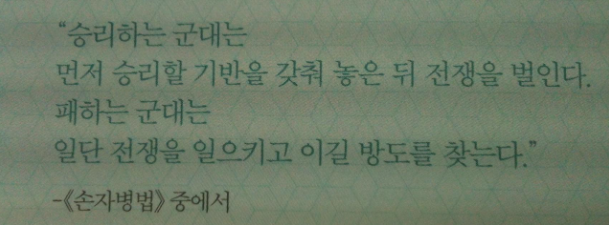 “승리하는 군대는
먼저 승리할 기반을 갖춰 놓은 뒤 전쟁을 벌인다.
패하는 군대는
일단 전쟁을 일으키고 이길 방도를 찾는다.”
-《손자병법》 중에서